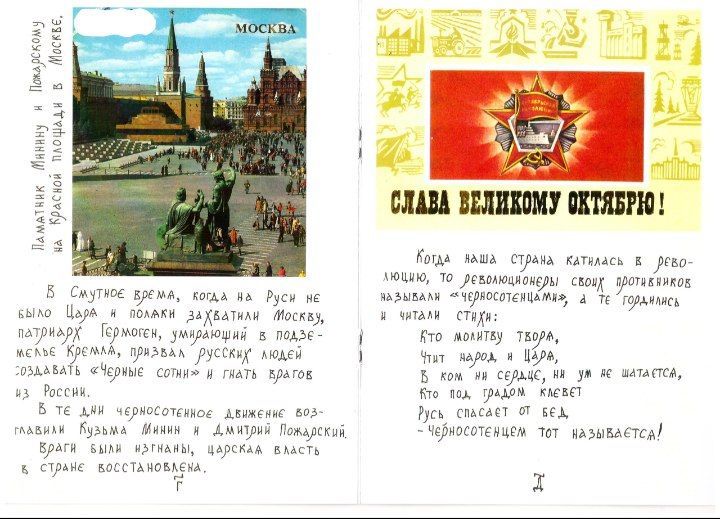 Памятник Минину и Пожарскому
на Красной площади в Москве.
МОСКВА
В Смутное время, когда на Руси не
было Царя и поляки захватили Москву,
патриарх Гермоген, умирающий в подзе-
мелье Кремля, призвал русских людей
создавать «Черные сотни» и гнать врагов
из России.
В те дни черносотенное движение воз-
главили Кузьма Минин и Дмитрий Пожарский.
Враги были изгнаны, царская власть
в стране восстановлена.
Г
СЛАВА ВЕЛИКОМУ ОКТЯБРЮ!
Когда наша страна катилась в рево-
люцию, то революционеры своих противников
называли «черносотенцами», а те гордились
и читали стихи:
Кто молитву творя,
Чтит народ и Царя,
В ком ни сердце, ни ум не шатается,
Кто под градом клевет
Русь спасает от бед,
- Черносотенцем тот называется!
Д